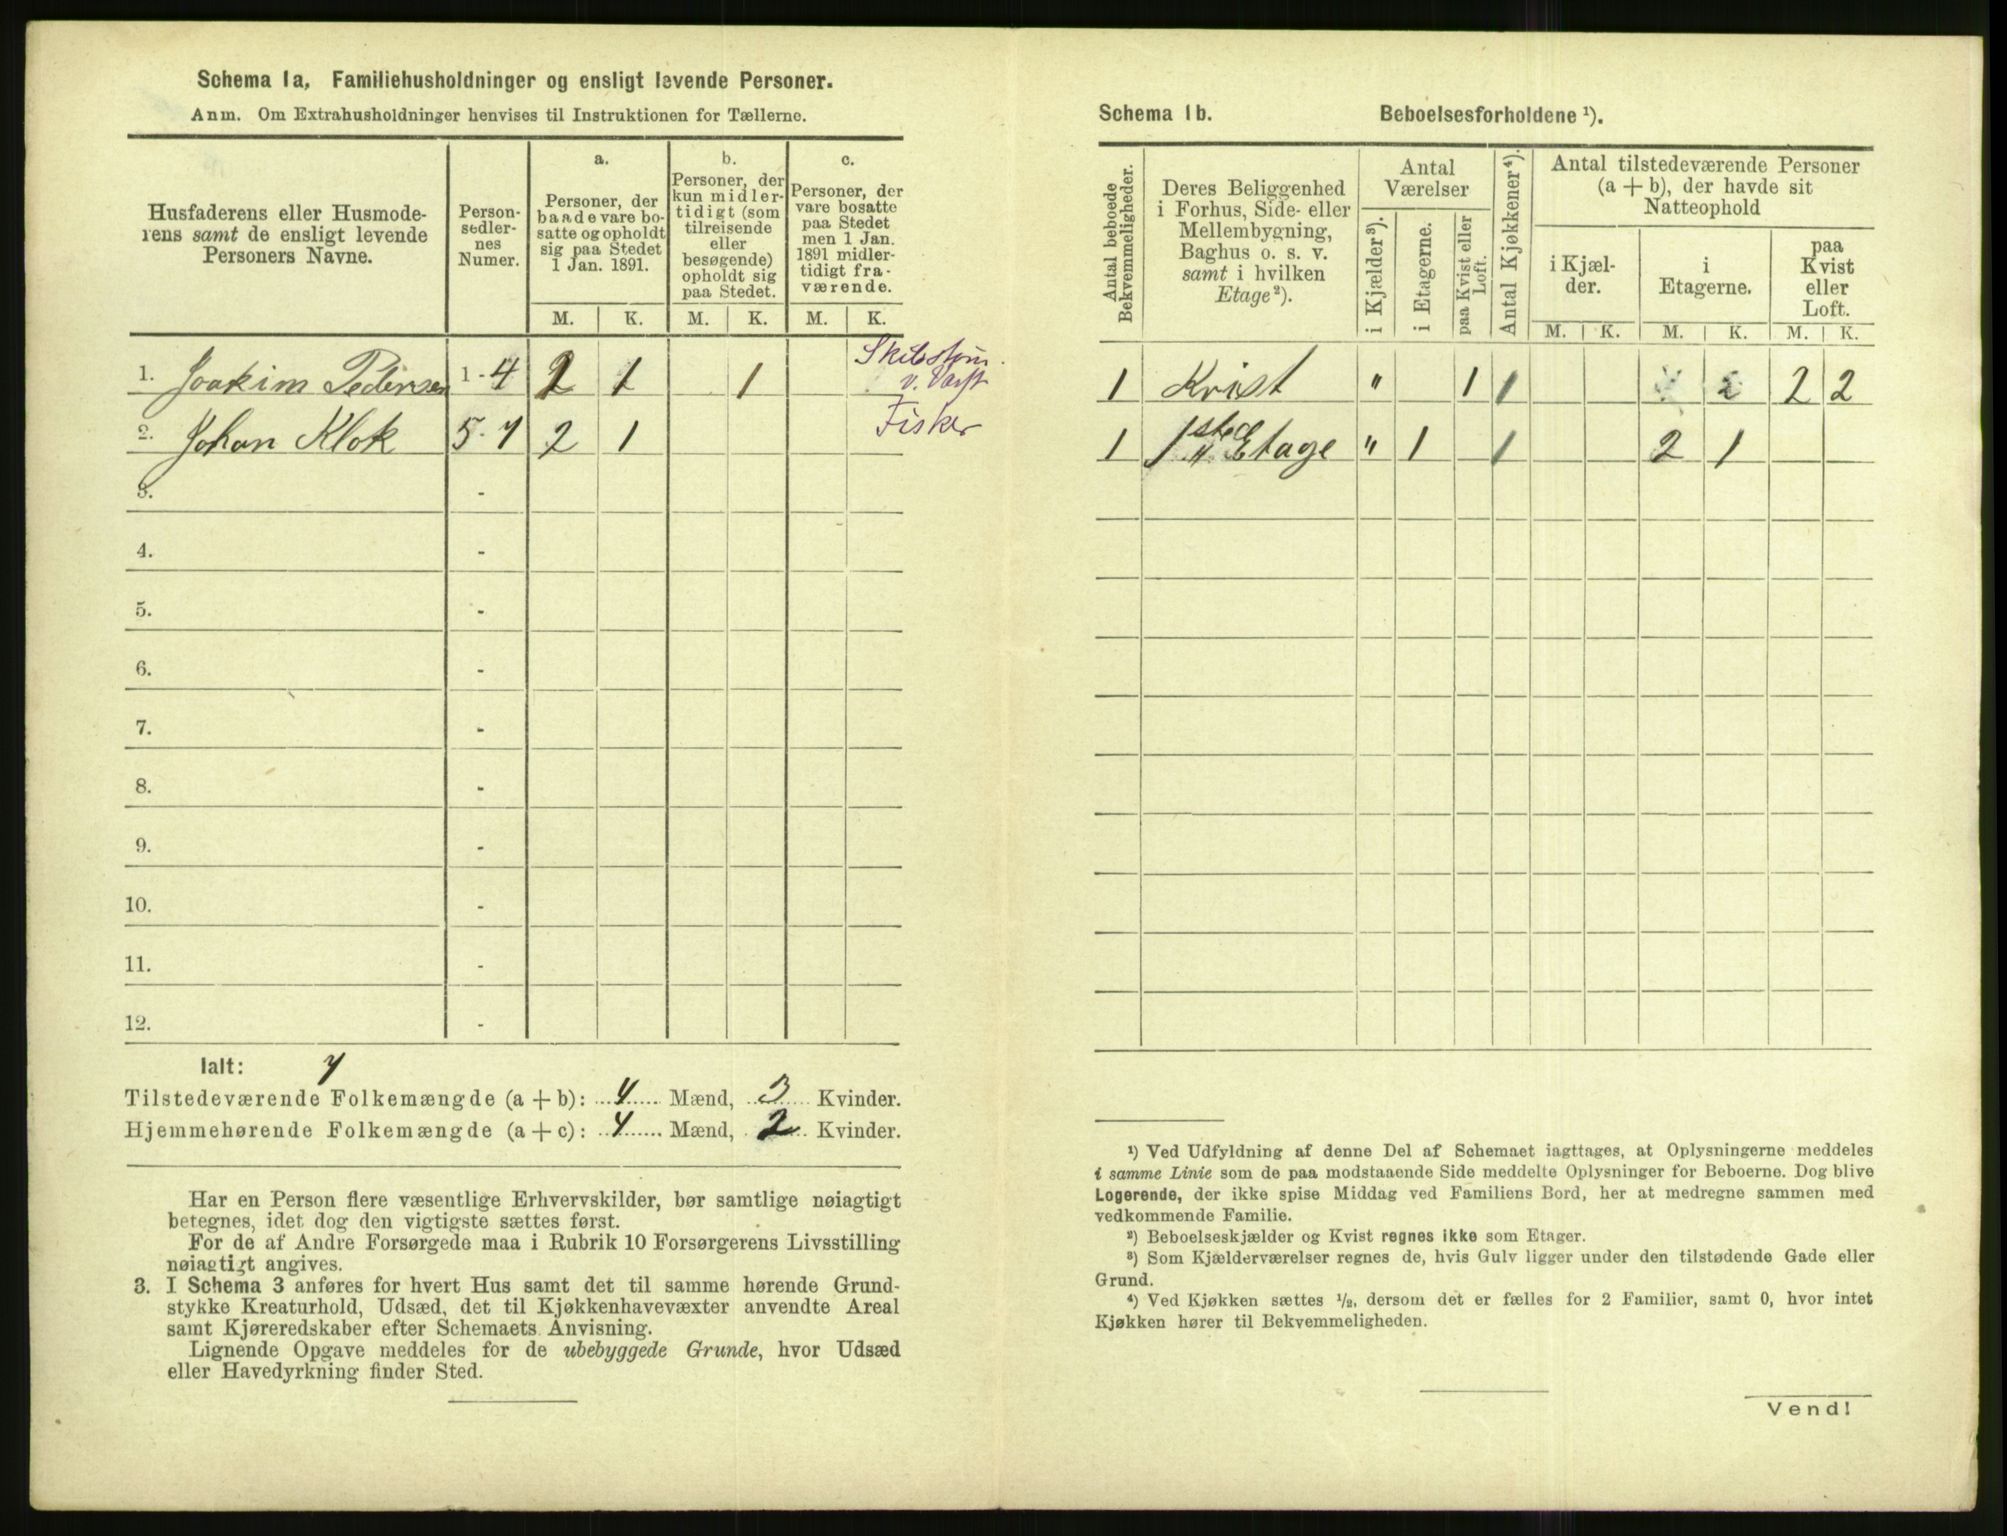 Schema 1a, Familiehusholdninger og ensligt levende Personer.
Anm. Om Extrahusholdninger henvises til Instruktionen for Tællerne.
Husfaderens eller Husmode-
rens samt de ensligt levende
Personers Navne.
Person-
sedler-
nes
Numer.
a.
Personer, der
baade vare bo-
satte og opholdt
sig paa Stedet
1 Jan. 1891.
b.
Personer, der
kun midler-
tidigt (som
tilreisende
eller
besøgende)
opholdt sig
paa Stedet.
c.
Personer, der
vare bosatte
paa Stedet
men 1 Jan.
1891 midler-
tidigt fra-
værende.
M. K. M. K. M. K.
1. Joakim Pedersen 1-4 2 1 1
v. Værft
2. Johan Klok 5-7 2 1 Fisker
3. -
4. -
5. -
6. -
7. -
8. -
9. -
10. -
11. -
12. -
Ialt: 7
Tilstedeværende Folkemængde (a + b): 4 Mænd, 3 Kvinder.
Hjemmehørende Folkemængde (a + c): 4 Mænd, 2 Kvinder.
Har en Person flere væsentlige Erhvervskilder, bør samtlige nøiagtigt
betegnes, idet dog den vigtigste sættes først.
For de af Andre Forsørgede maa i Rubrik 10 Forsørgerens Livsstilling
nøiagtigt angives.
3. I Schema 3 anføres for hvert Hus samt det til samme hørende Grund-
stykke Kreaturhold, Udsæd, det til Kjøkkenhavevæxter anvendte Areal
samt Kjøreredskaber efter Schemaets Anvisning.
Lignende Opgave meddeles for de ubebyggede Grunde, hvor Udsæd
eller Havedyrkning finder Sted.
Schema 1b. Beboelsesforholdene ¹).
Antal beboede
Bekvemmeligheder.
Deres Beliggenhed
i Forhus, Side- eller
Mellembygning,
Baghus o. s. v.
samt i hvilken
Etage²).
Antal
Værelser
i Kjælder³).
i Etagerne.
paa Kvist eller
Loft.
Antal Kjøkkener⁴).
Antal tilstedeværende Personer
(a + b), der havde sit
Natteophold
i Kjæl-
der.
i
Etagerne.
paa
Kvist
eller
Loft.
M. K. M. K. M. K.
1 Kvist " 1 1 2 2
1 1ste Etage " 1 1 2 1
¹) Ved Udfyldning af denne Del af Schemaet iagttages, at Oplysningerne meddeles
i samme Linie som de paa modstaaende Side meddelte Oplysninger for Beboerne. Dog blive
Logerende, der ikke spise Middag ved Familiens Bord, her at medregne sammen med
vedkommende Familie.
²) Beboelseskjælder og Kvist regnes ikke som Etager.
³) Som Kjælderværelser regnes de, hvis Gulv ligger under den tilstødende Gade eller
Grund.
⁴) Ved Kjøkken sættes ½, dersom det er fælles for 2 Familier, samt 0, hvor intet
Kjøkken hører til Bekvemmeligheden.
Vend!